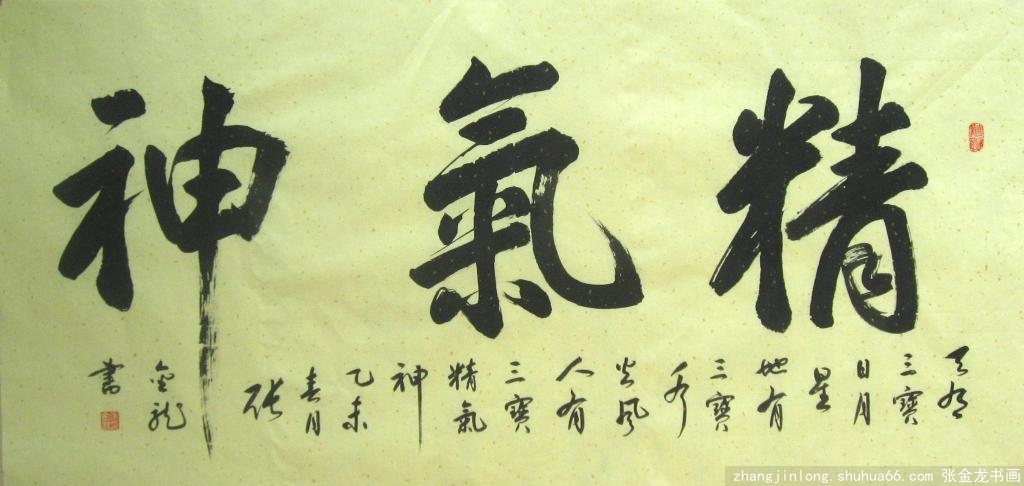 精氣神
天有
三寶
日月
星
地有
三寶
水
火風
人有
三寶
精氣
神
乙未
春月
張
金龍
書
zhangjinlong.shuhua66.com 张金龙书画